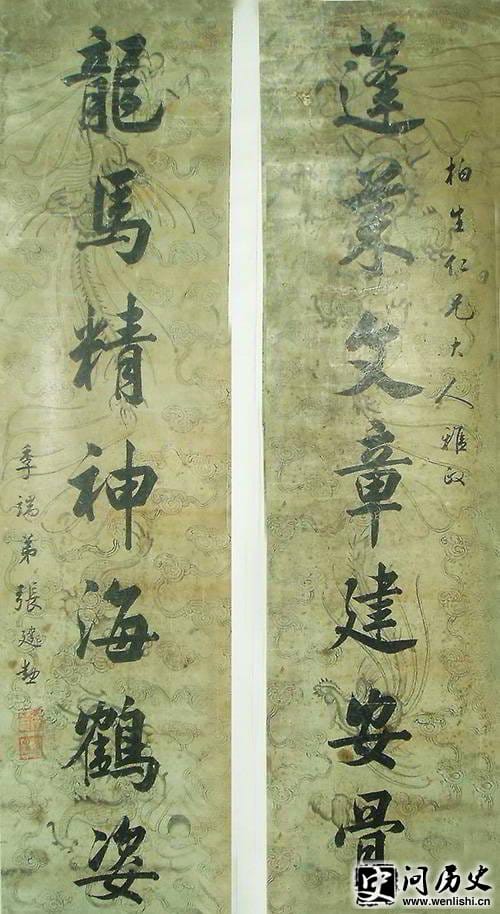 柏生仁兄大人雅政
蓬莱文章建安骨
龍馬精神海鶴姿
季端弟張建勳
问历史
www.wenlishi.cn